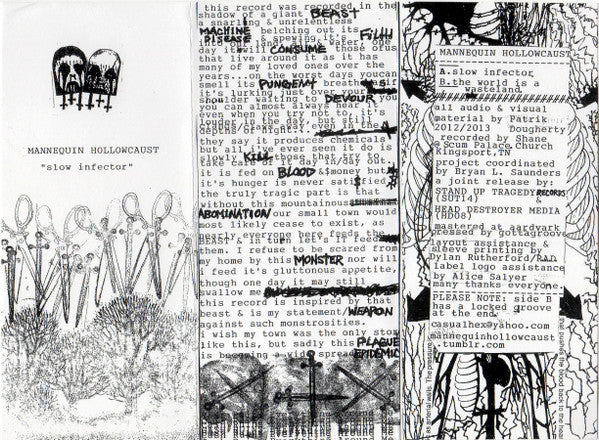 MANNEQUIN HOLLOWCAUST
"slow infector"
this record was recorded in the
shadow of a giant BEAST
a snarling & unrelentless
MACHINE belching out its
DISEASE & spewing it's FILTH
into our land, air & water.
day it will CONSUME those of us
that live around it as it has
many of my loved ones over the
years...on the worst days you can
smell its PUNGENT breath as if
it's lurking just over your
shoulder waiting to DEVOUR you
you can almost always hear it
even when you try not to, it's
louder in the day, but still
depths of night...
they say it produces chemicals
but all i've ever seen it do is
slowly KILL those that try to
take care of it day in
it is fed on BLOOD &$money but
it's hunger is never satisfied
the truly tragic part is that
without this mountainous
ABOMINATION our small town would
most likely cease to exist, as
nearly everyone here feeds the
BEAST & in turn let's it feed
them. I refuse to be scared from
my home by this MONSTER nor will
i feed it's gluttonous appetite,
though one day it may still
swallow me
this record is inspired by that
beast & is my statement/WEAPON
against such monstrosities.
I wish my town was the only story
like this, but sadly this PLAGUE
is becoming a wide spread EPIDEMIC
MANNEQUIN HOLLOWCAUST
A.slow infector
B.the world is a
wasteland
all audio & visual
material by Patrik
2012/2013 Dougherty
recorded by Shane
@ Scum Palace Church
Kingsport,TN
project coordinated
by Bryan L. Saunders
a joint release by:
STAND UP TRAGEDY RECORDS
(SUT14) &
HEAD DESTROYER MEDIA
(HD08)
mastered at aardvark
pressed by gotgroove
layout assistance &
sleeve printing by
Dylan Rutherford/RAD
label logo assistance
by Alice Salyer
many thanks everyone.
PLEASE NOTE: side B
has a locked groove
at the end.
casualhex@yahoo.com
mannequinhollowcaust
.tumblr.com